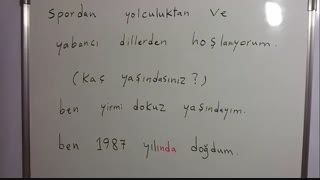 spordan yolculuktan ve
yabancı dillerden hoşlanıyorum.
(kaç yaşındasınız?)
ben yirmi dokuz yaşındayım.
ben 1987 yılında doğdum.